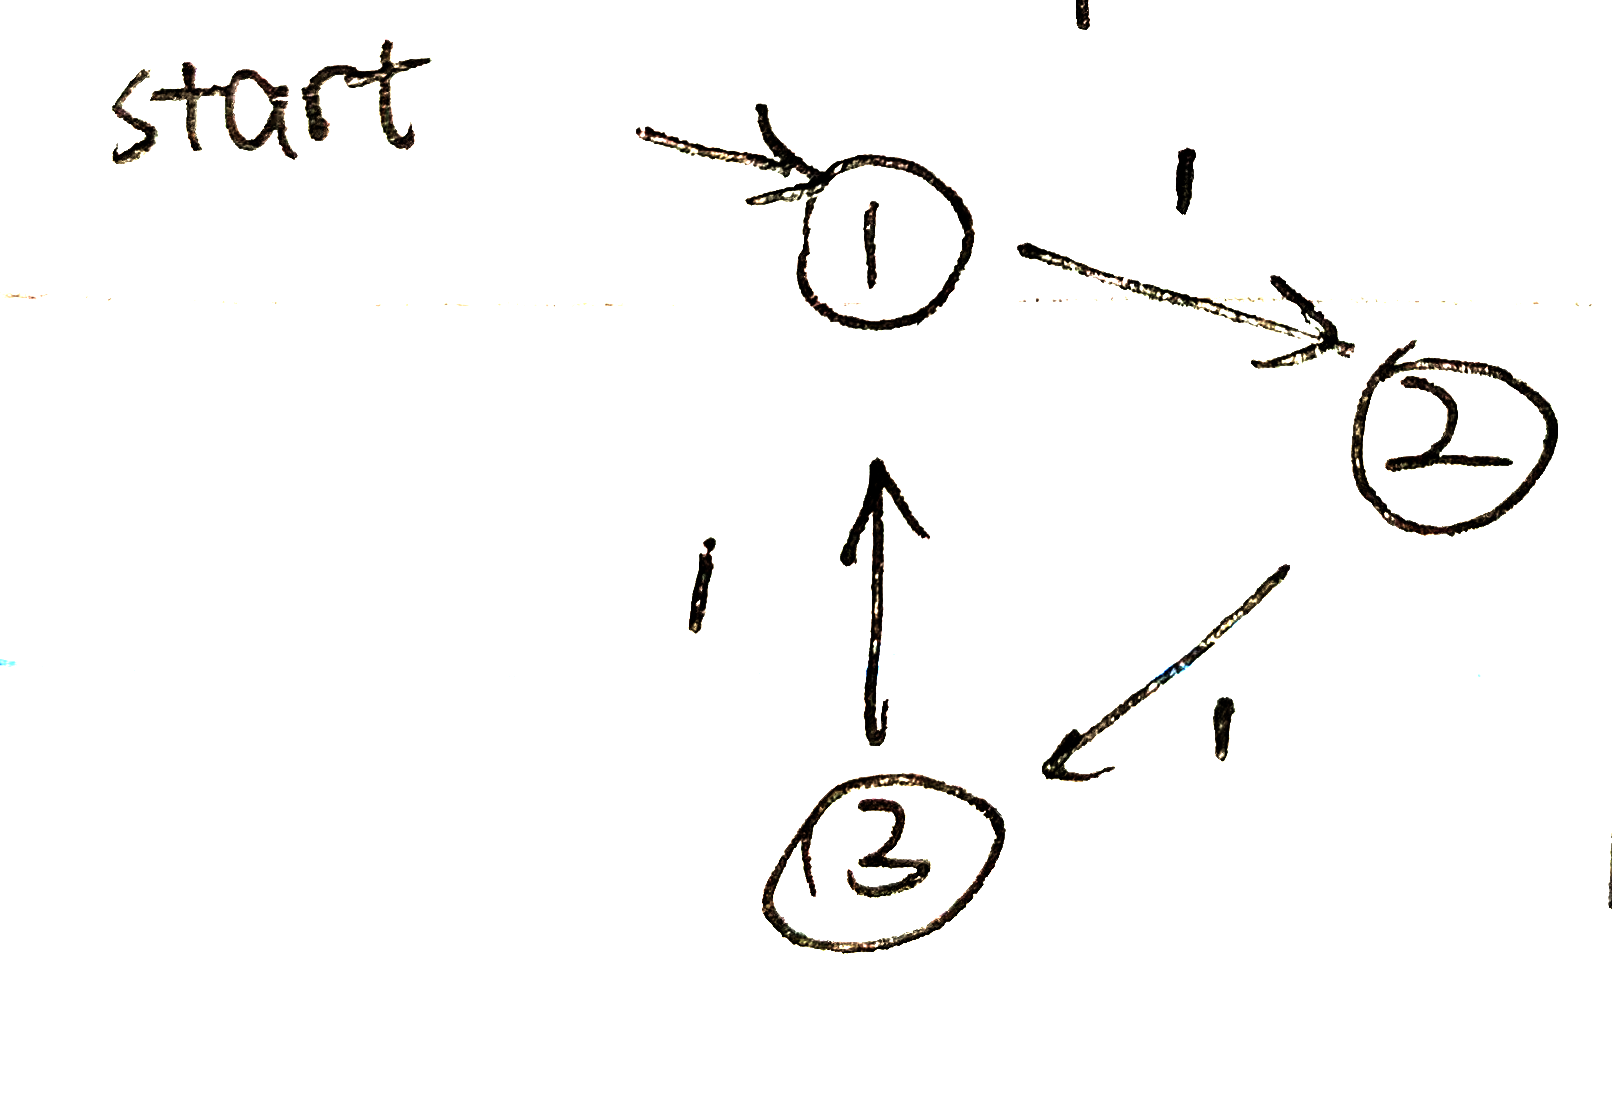 start
1
1
2
1
1
3